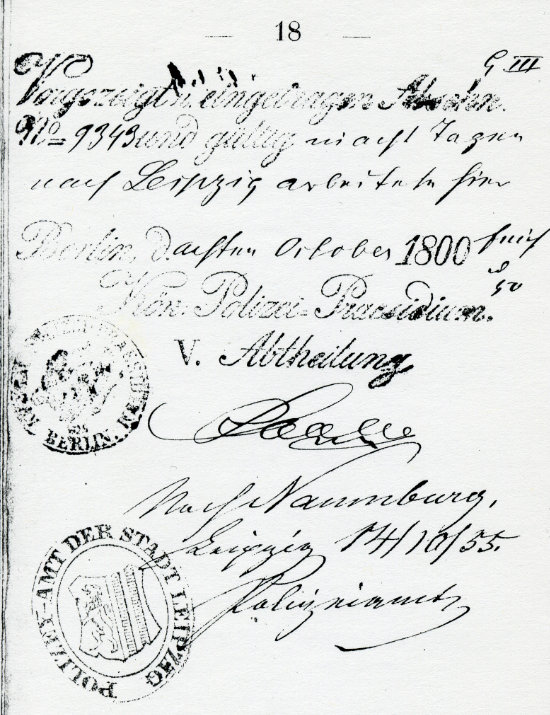 — 18 —
G III
Vorgezeigt u. eingetragen Abschn.
No 9343 und gültig in acht Tagen
nach Leipzig arbeitete hier
Berlin, d achten October 1800 fünf
u 50
Kön. Polizei-Praesidium.
V. Abtheilung
BERLIN.
Nach Naumburg,
Leipzig 14/10/55.
Polizeiamt
POLIZEY-AMT DER STADT LEIPZIG